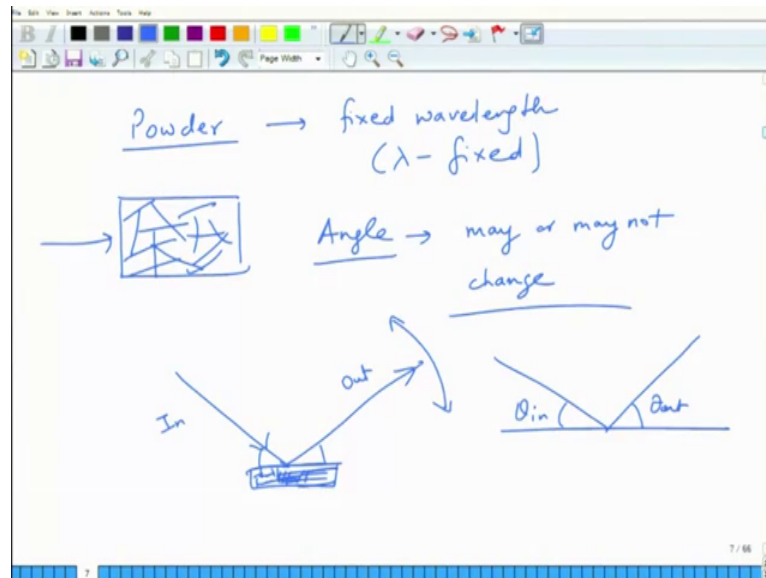 File Edit View Insert Actions Tools Help
B I
Page Width
Powder → fixed wavelength
(λ - fixed)
Angle → may or may not
change
In
Out
θin
θout
7 / 66
7